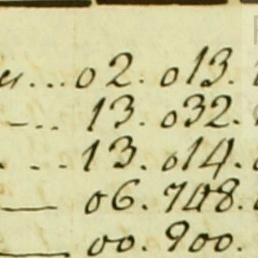 02. 013.
13. 032.
13. 014.
06. 748.
00. 900.